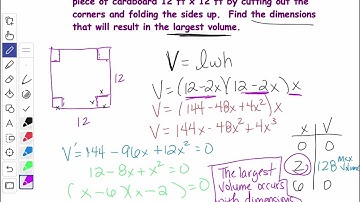 piece of cardboard 12 ft x 12 ft by cutting out the
corners and folding the sides up. Find the dimensions
that will result in the largest volume.
x
12
x x
12
V = lwh
V = (12-2x)(12-2x)x
V = (144-48x+4x²)x
V = 144x-48x²+4x³
V' = 144 - 96x + 12x² = 0
12 - 8x + x² = 0
(x-6)(x-2) = 0
The largest
volume occurs
with dimensions
x V
0 0
2 128 max volume
6 0